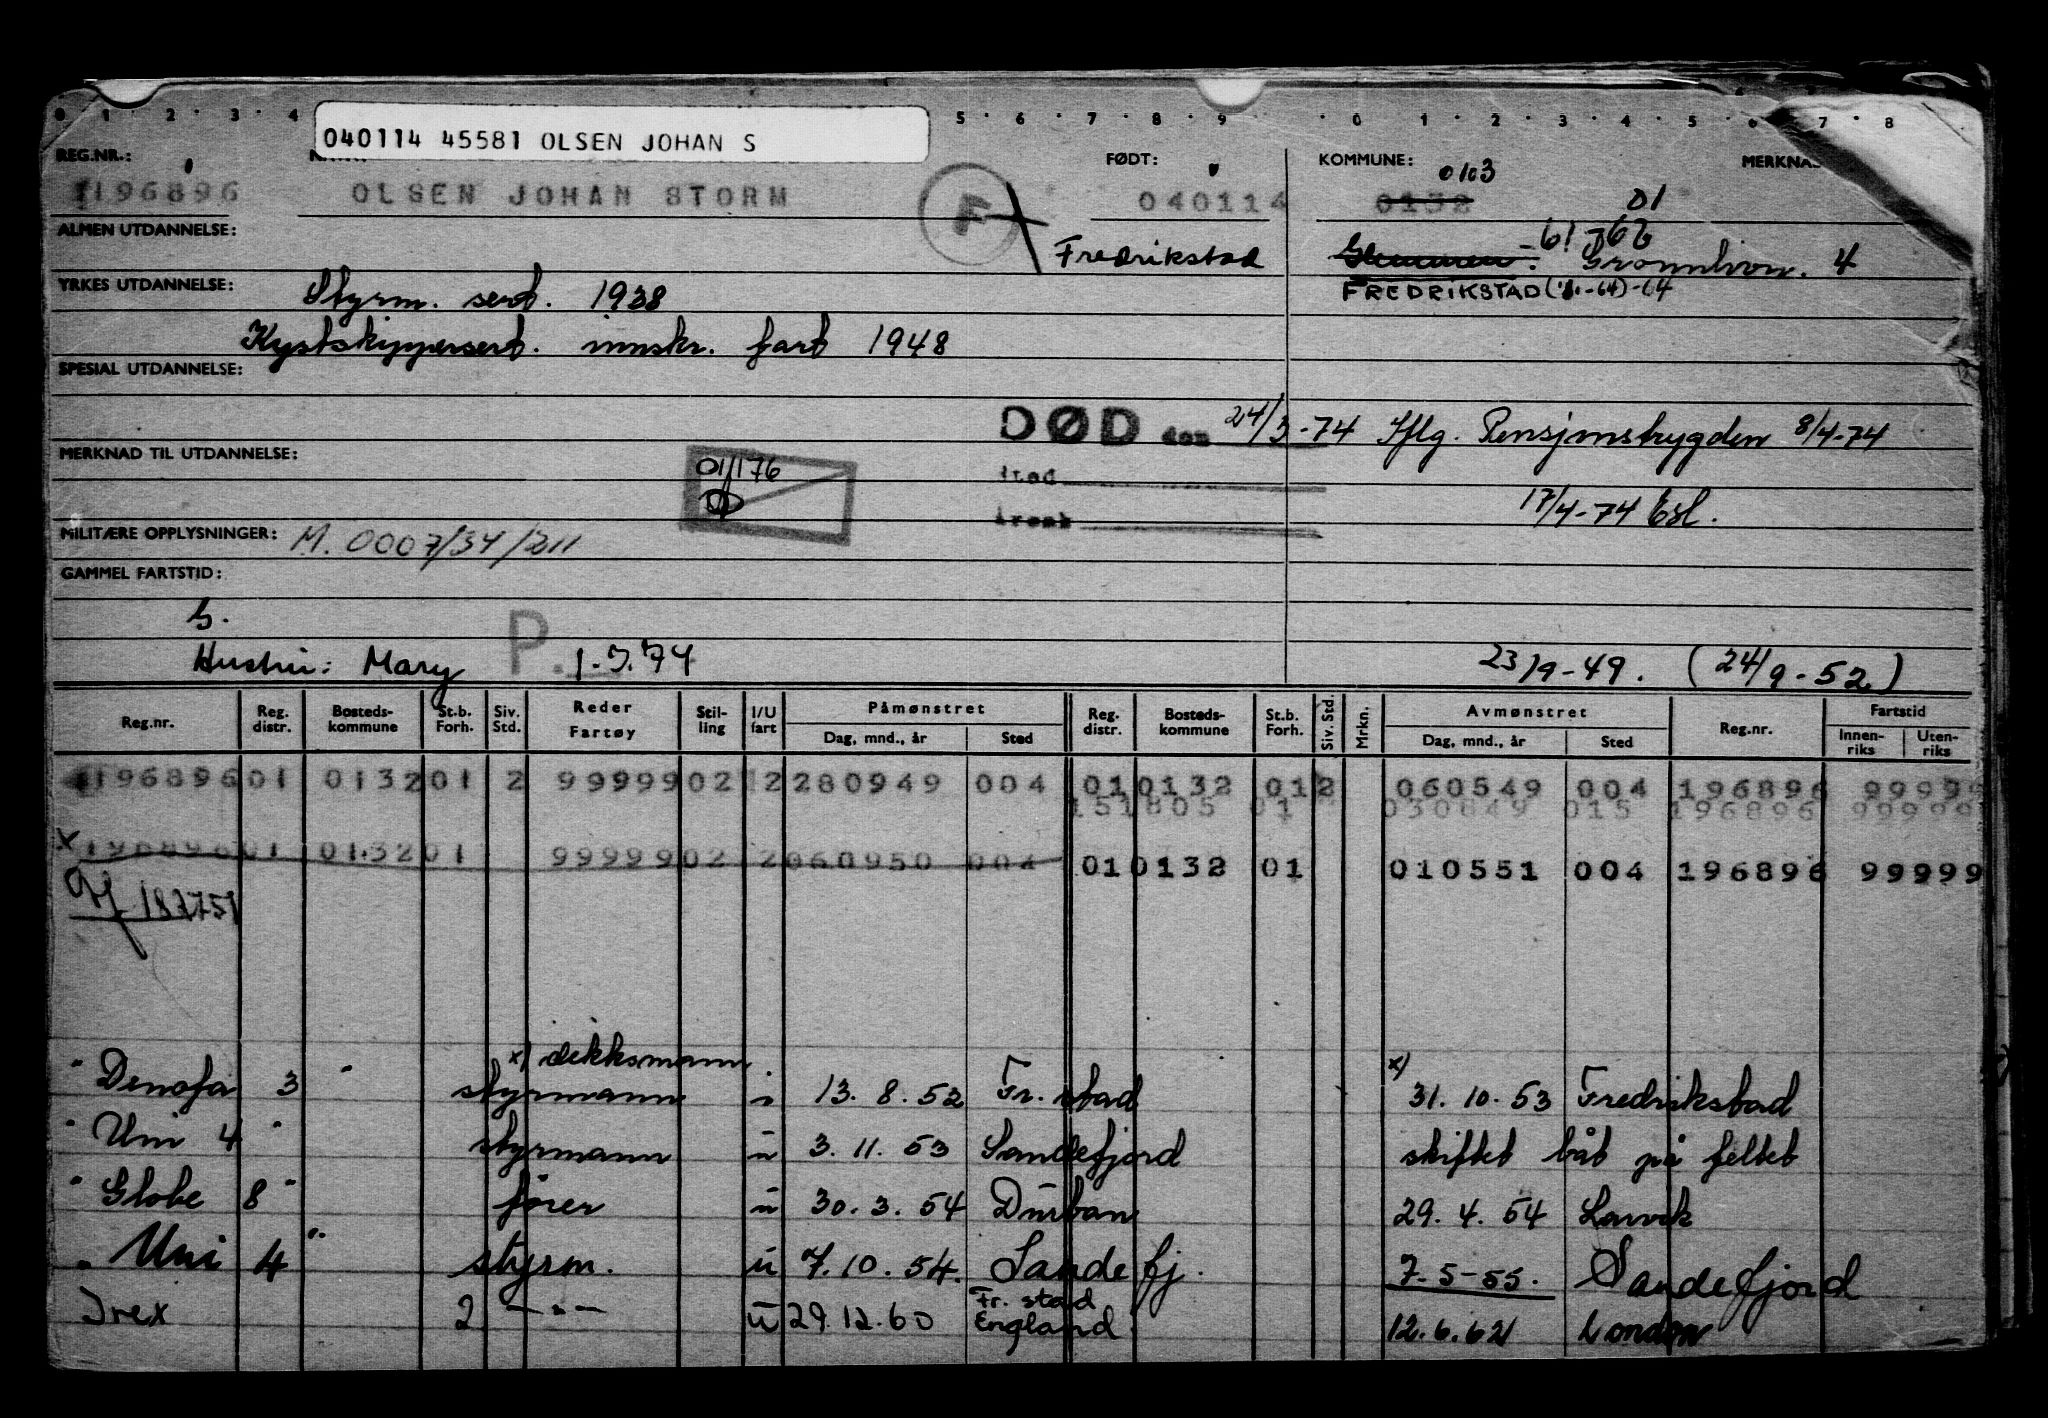 040114 45581 OLSEN JOHAN S
REG.NR.: FØDT: KOMMUNE: 0103 MERKNA
196896 OLSEN JOHAN STORM F 040114 0132 01
ALMEN UTDANNELSE: Fredrikstad Glemmen. 4
YRKES UTDANNELSE: Styrm. sert. 1938 FREDRIKSTAD
Kystskippersert. innskr. fart 1948
SPESIAL UTDANNELSE:
DØD den 24/3-74 Iflg. Pensjonstrygden 8/4-74
MERKNAD TIL UTDANNELSE: 01/176
17/4-74
MILITÆRE OPPLYSNINGER: M. 0007/34/211
GAMMEL FARTSTID:
Hustru: Mary P. 23/9-49. (24/9-52)
Reg.nr. Reg. distr. Bosteds-kommune St.b. Forh. Siv. Std. Reder Fartøy Stil-ling I/U fart Påmønstret Dag, mnd., år Sted Reg. distr. Bosteds-kommune St.b. Forh. Siv. Std. Mrkn. Avmønstret Dag, mnd., år Sted Reg.nr. Fartstid Innen-riks Uten-riks
196896 01 0132 01 2 99999 02 2 280949 004 01 0132 01 2 060549 004 196896 99999
151805 01 030849 015 196896 99999
x 196896 01 0132 01 99999 02 2 060950 004 01 0132 01 010551 004 196896 99999
x) dekksmann
" Denofa 3 " styrmann 13.8.52 Fr.stad x) 31.10.53 Fredrikstad
" Uni 4 " styrmann u 3.11.53 Sandefjord skiftet båt på feltet
" Globe 8 " fører u 30.3.54 Durban 29.4.54 Larvik
" Uni 4 " styrm. u 7.10.54. Sandefj. 7-5-55. Sandefjord
Irex 2 — " — u 29.12.60 Fr.stad England 12.6.62 London